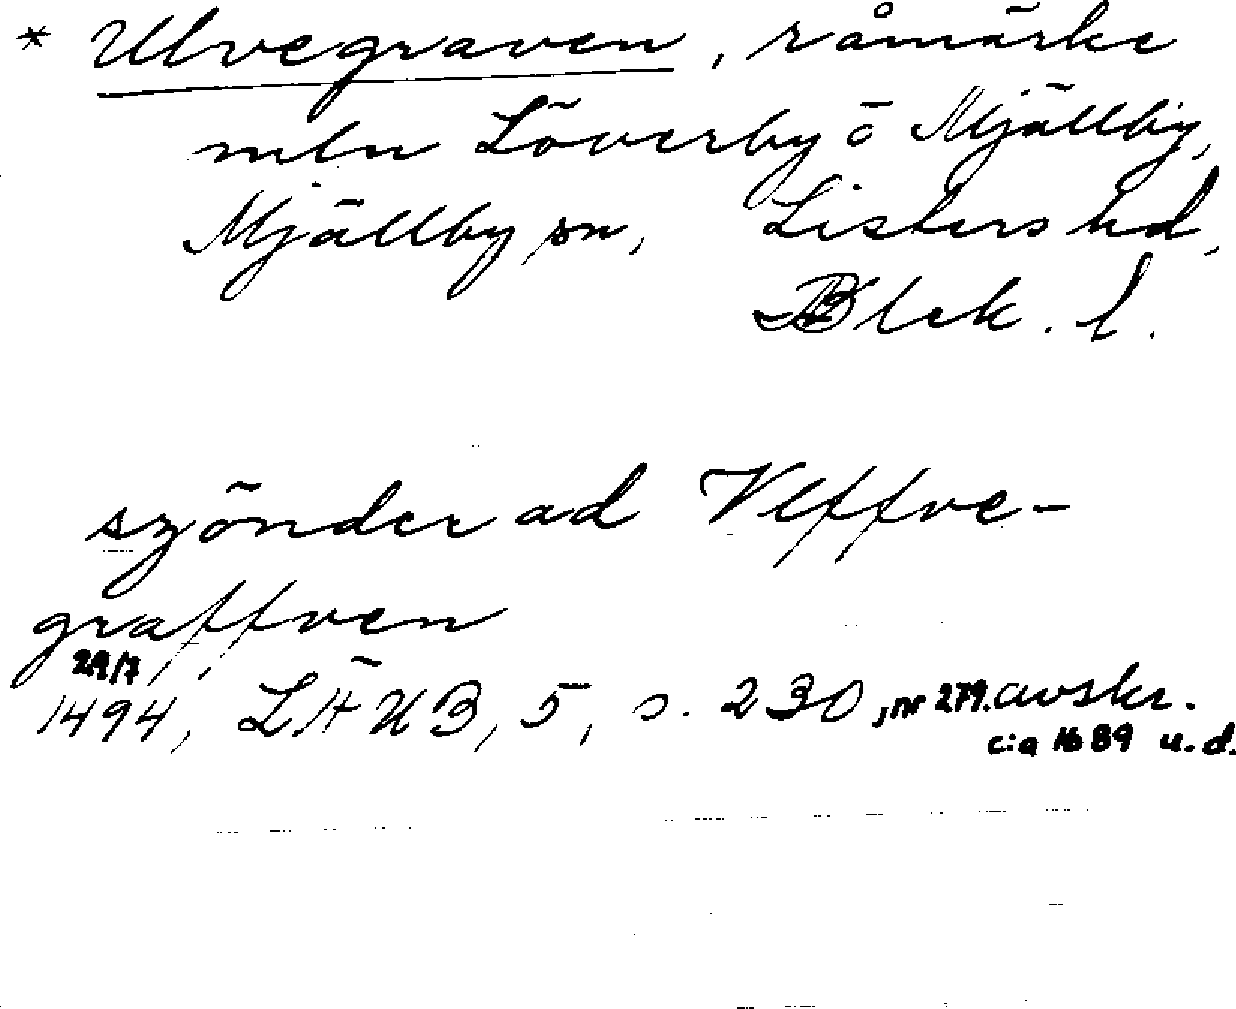 * Ulvegraven, råmärke
mln Löverby ö Mjällby,
Mjällby sn, Listers hd,
Blek. l.
szönder ad Vlffve-
graffven
29/7
1494, LÄUB, 5, s. 230, nr 279. avskr.
c:a 1689 u.d.